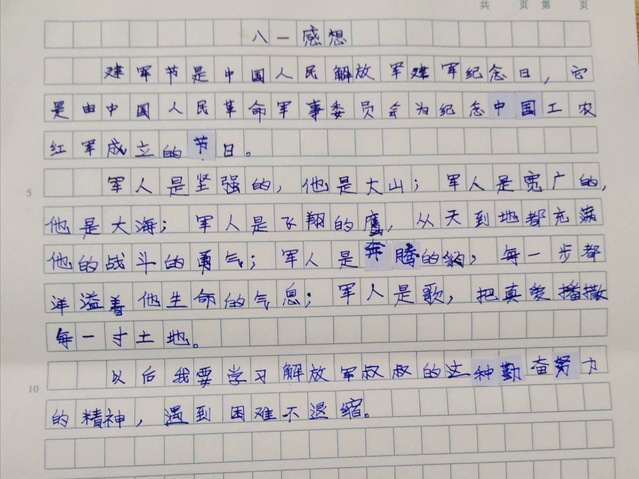 共 页 第 页
八一感想
建军节是中国人民解放军建军纪念日，它
是由中国人民革命军事委员会为纪念中国工农
红军成立的节日。
5
军人是坚强的，他是大山；军人是宽广的，
他是大海；军人是飞翔的鹰，从天到地都充满
他的战斗的勇气；军人是奔腾的豹，每一步都
洋溢着他生命的气息；军人是歌，把真爱播撒
每一寸土地。
10
以后我要学习解放军叔叔的这种勤奋努力
的精神，遇到困难不退缩。